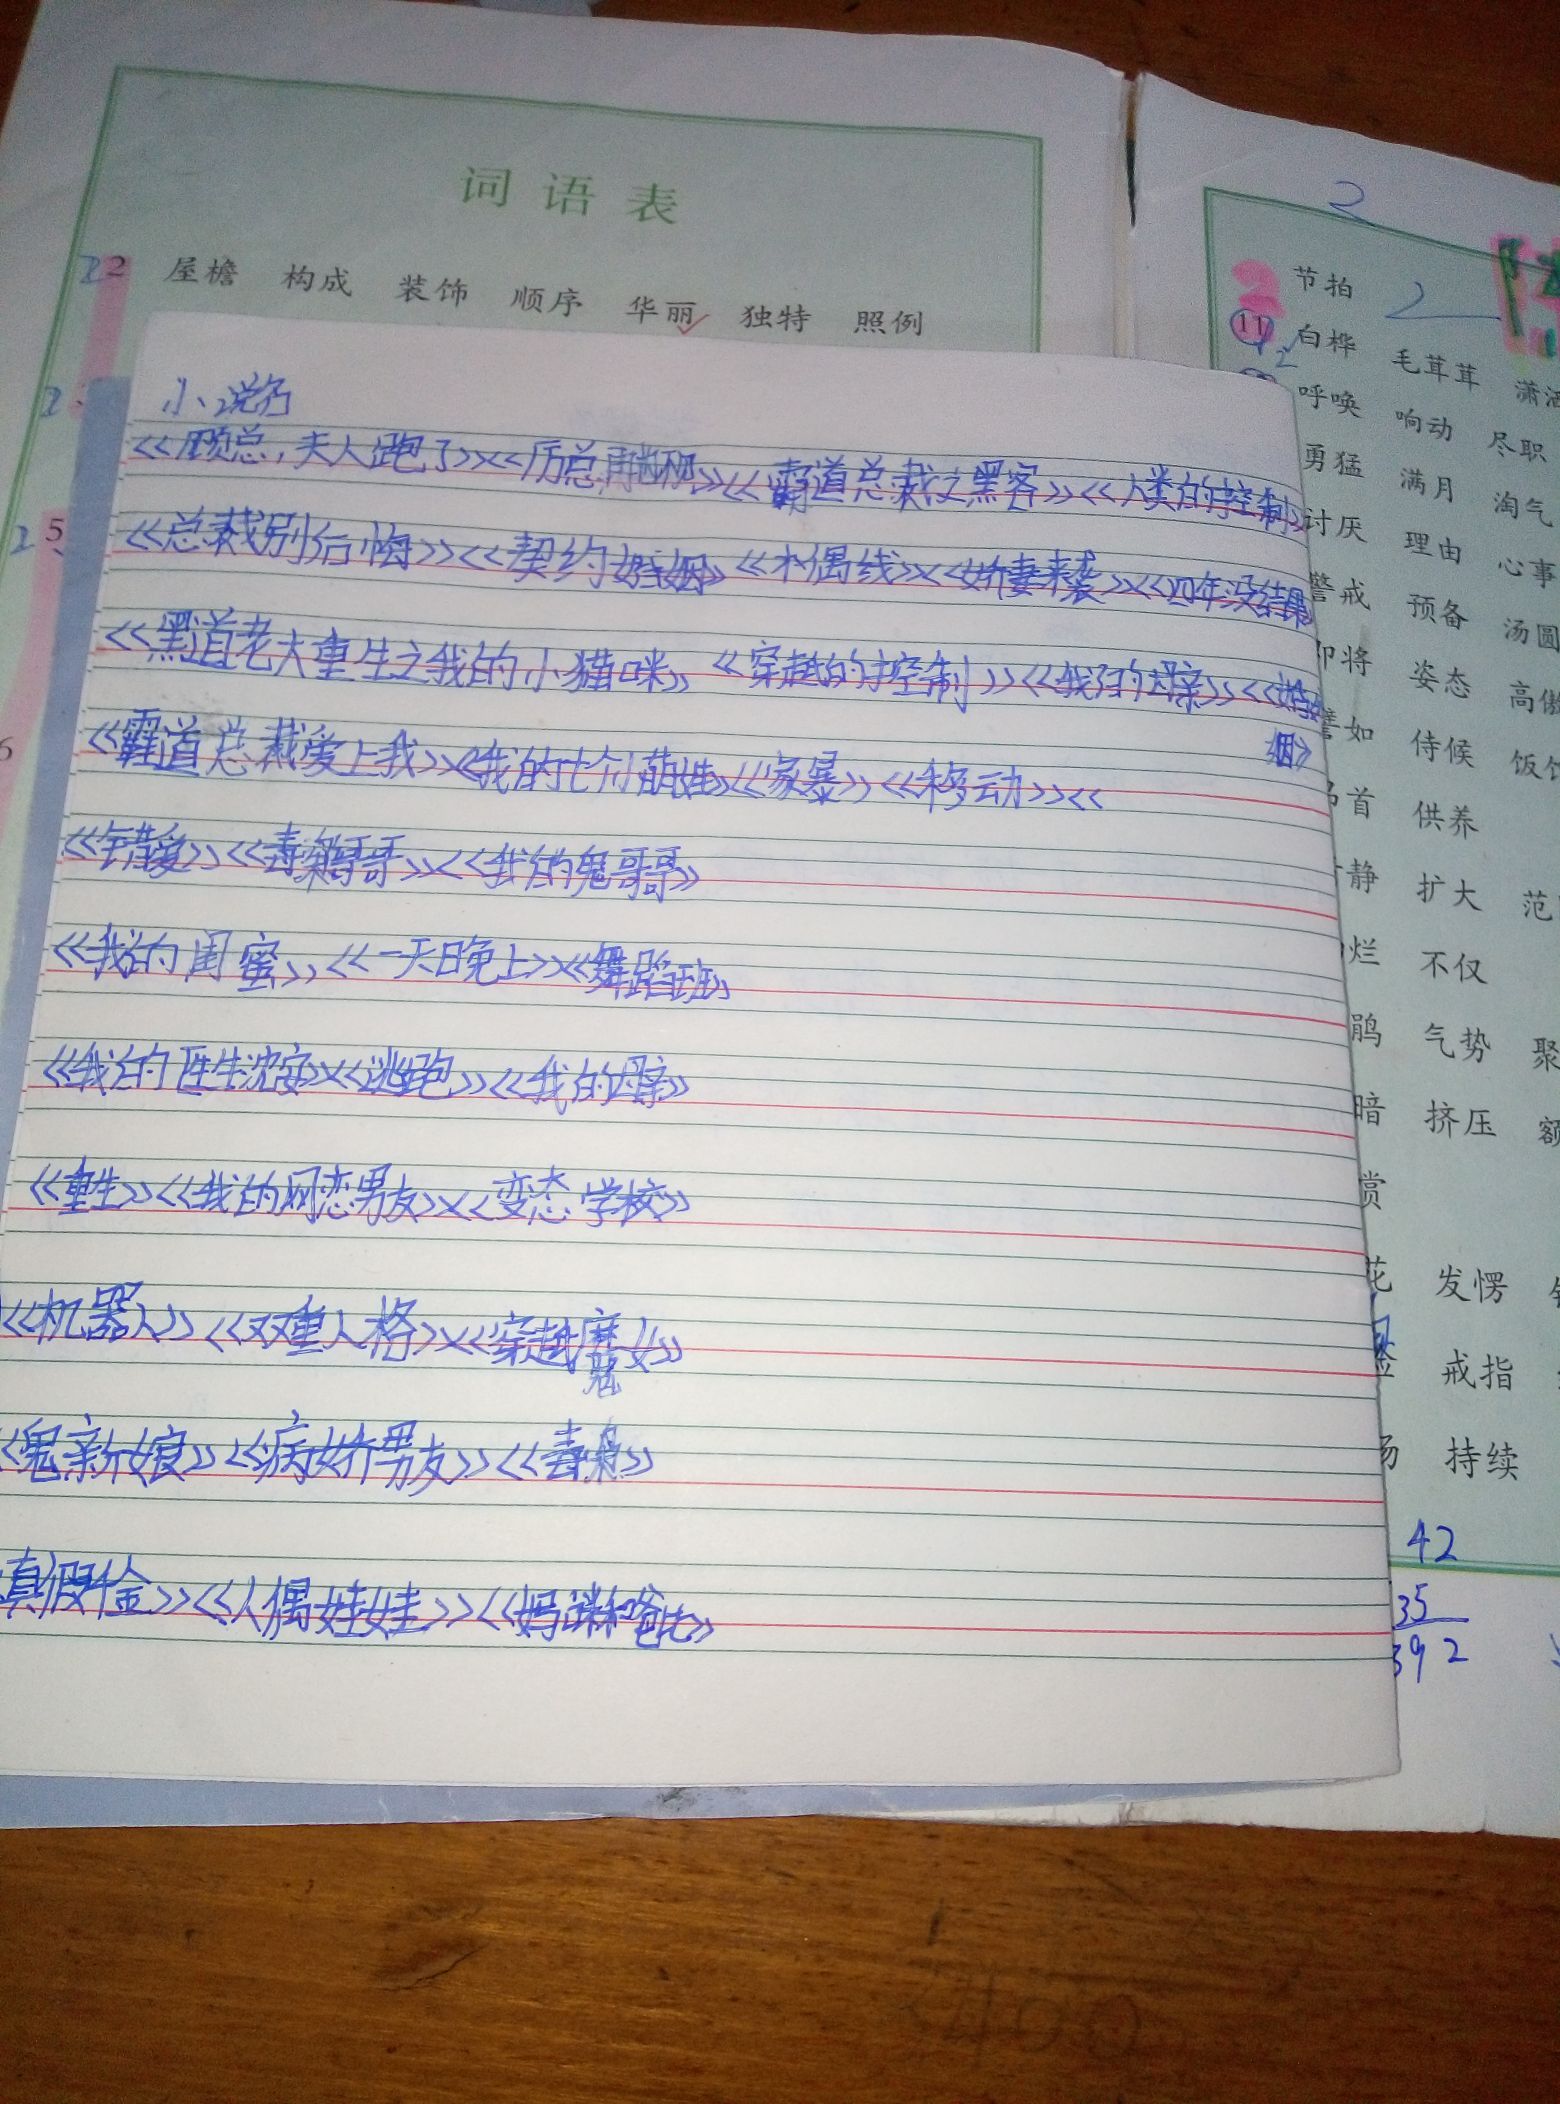 词语表
2 屋檐 构成 装饰 顺序 华丽 独特 照例
小说名
《顾总,夫人跑了》《厉总
《霸道总裁之黑客》《人类的控制》
《总裁别后悔》《契约婚姻》《木偶线》《娇妻来袭》《四年没结果
《黑道老大重生之我的小猫咪》《穿越的控制》《我的母亲》《婚姻》
《霸道总裁爱上我》《我的七个小萌娃》《家暴》《移动》《
《错爱》《毒枭哥哥》《我的鬼哥哥》
《我的闺蜜》《一天晚上》《舞蹈班》
《我的医生沈安》《逃跑》《我的母亲》
《重生》《我的网恋男友》《变态学校》
《机器人》《双重人格》《穿越魔女》
《鬼新娘》《病娇男友》《毒枭》
真假千金》《人偶娃娃》《妈咪和爸比》
2
节拍
11 白桦 毛茸茸 潇洒
呼唤 响动 尽职
勇猛 满月 淘气
讨厌 理由 心事
警戒 预备 汤圆
即将 姿态 高傲
譬如 侍候 饭馆
首 供养
静 扩大 范
烂 不仅
鹃 气势 聚
暗 挤压 额
赏
花 发愣
戒指
扬 持续
42
35
392